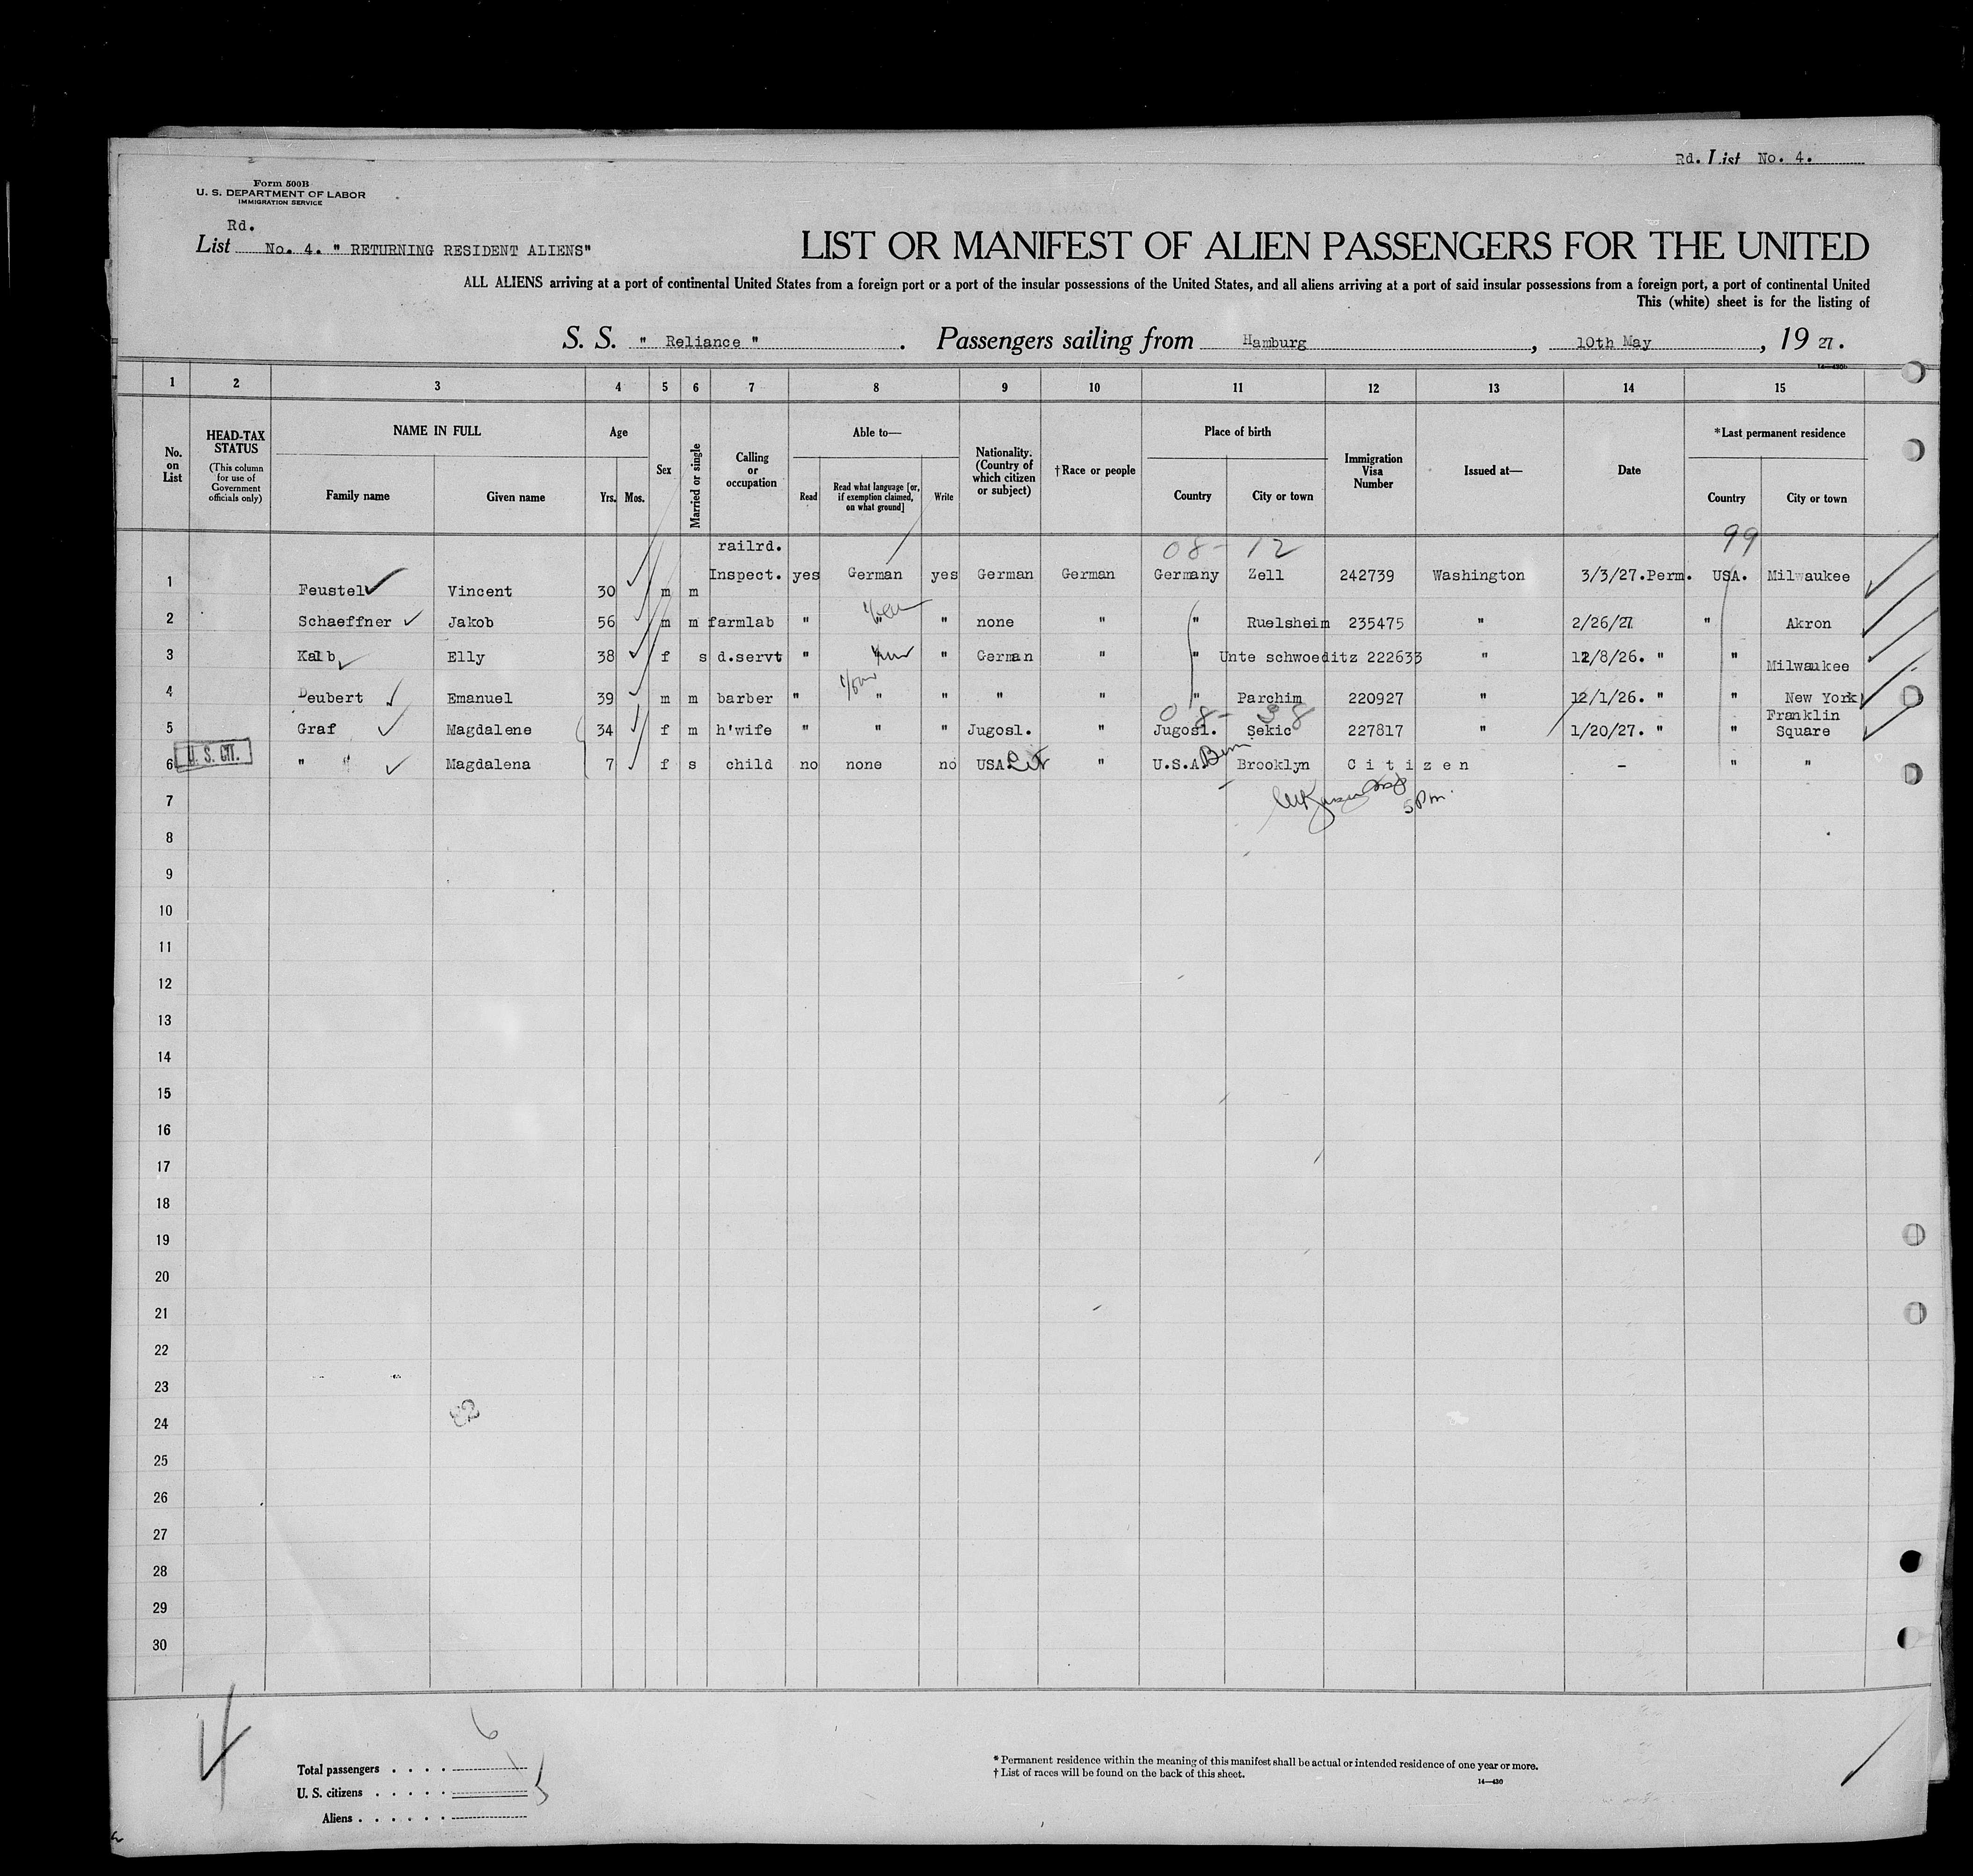 Rd. List No. 4.
Form 500B
U. S. DEPARTMENT OF LABOR
IMMIGRATION SERVICE
Rd.
List No. 4. " RETURNING RESIDENT ALIENS"
LIST OR MANIFEST OF ALIEN PASSENGERS FOR THE UNITED
ALL ALIENS arriving at a port of continental United States from a foreign port or a port of the insular possessions of the United States, and all aliens arriving at a port of said insular possessions from a foreign port, a port of continental United
This (white) sheet is for the listing of
S. S. " Reliance " . Passengers sailing from Hamburg , 10th May , 19 27.
1 2 3 4 5 6 7 8 9 10 11 12 13 14 15
No. on List
HEAD-TAX STATUS
(This column for use of Government officials only)
NAME IN FULL
Family name Given name
Age
Yrs. Mos.
Sex
Married or single
Calling or occupation
Able to—
Read
Read what language [or, if exemption claimed, on what ground]
Write
Nationality. (Country of which citizen or subject)
†Race or people
Place of birth
Country City or town
Immigration Visa Number
Issued at—
Date
*Last permanent residence
Country City or town
08- 12 99
railrd.
1 Feustel Vincent 30 m m Inspect. yes German yes German German Germany Zell 242739 Washington 3/3/27.Perm. USA. Milwaukee
2 Schaeffner Jakob 56 m m farmlab " " " none " " Ruelsheim 235475 " 2/26/27 " Akron
3 Kalb Elly 38 f s d.servt " " German " " Unte schwoeditz 222633 " 12/8/26. " " Milwaukee
4 Deubert Emanuel 39 m m barber " " " " " " Parchim 220927 " 12/1/26. " " New York
08- 38
5 Graf Magdalene 34 f m h'wife " " " Jugosl. " Jugosl. Sekic 227817 " 1/20/27. " " Franklin Square
6 U. S. CIT. " " Magdalena 7 f s child no none no USA. " U.S.A. Brooklyn Citizen - " "
5 Pm.
7
8
9
10
11
12
13
14
15
16
17
18
19
20
21
22
23
24
25
26
27
28
29
30
4
6
Total passengers . . . .
U. S. citizens . . . . .
Aliens . . . . . .
* Permanent residence within the meaning of this manifest shall be actual or intended residence of one year or more.
† List of races will be found on the back of this sheet.
14—430